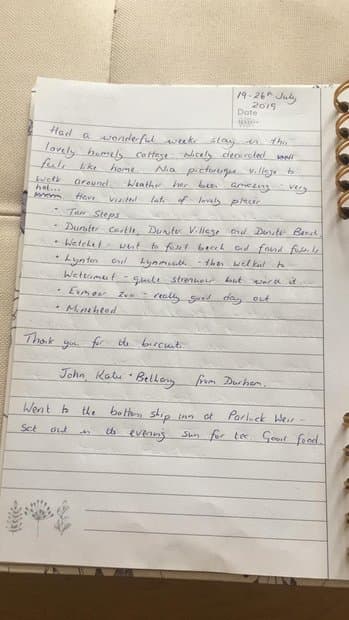 19-26th July
2019
Date
Had a wonderful weeks stay in this
lovely homely cottage. Nicely decorated
feels like home. Nice picturesque village to
walk around. Weather has been amazing - very
hot... Have visited lots of lovely places
• Tarr Steps
• Dunster Castle, Dunster Village and Dunster Beach
• Watchet - went to fossil beach and found fossils
• Lynton and Lynmouth - then walked to
Watersmeet - quite strenuous but worth it
• Exmoor Zoo - really good day out
• Minehead
Thank you for the biscuits.
John, Katie + Bethany from Durham.
Went to the bottom ship inn at Porlock Weir -
Sat out in the evening sun for tea. Good food.